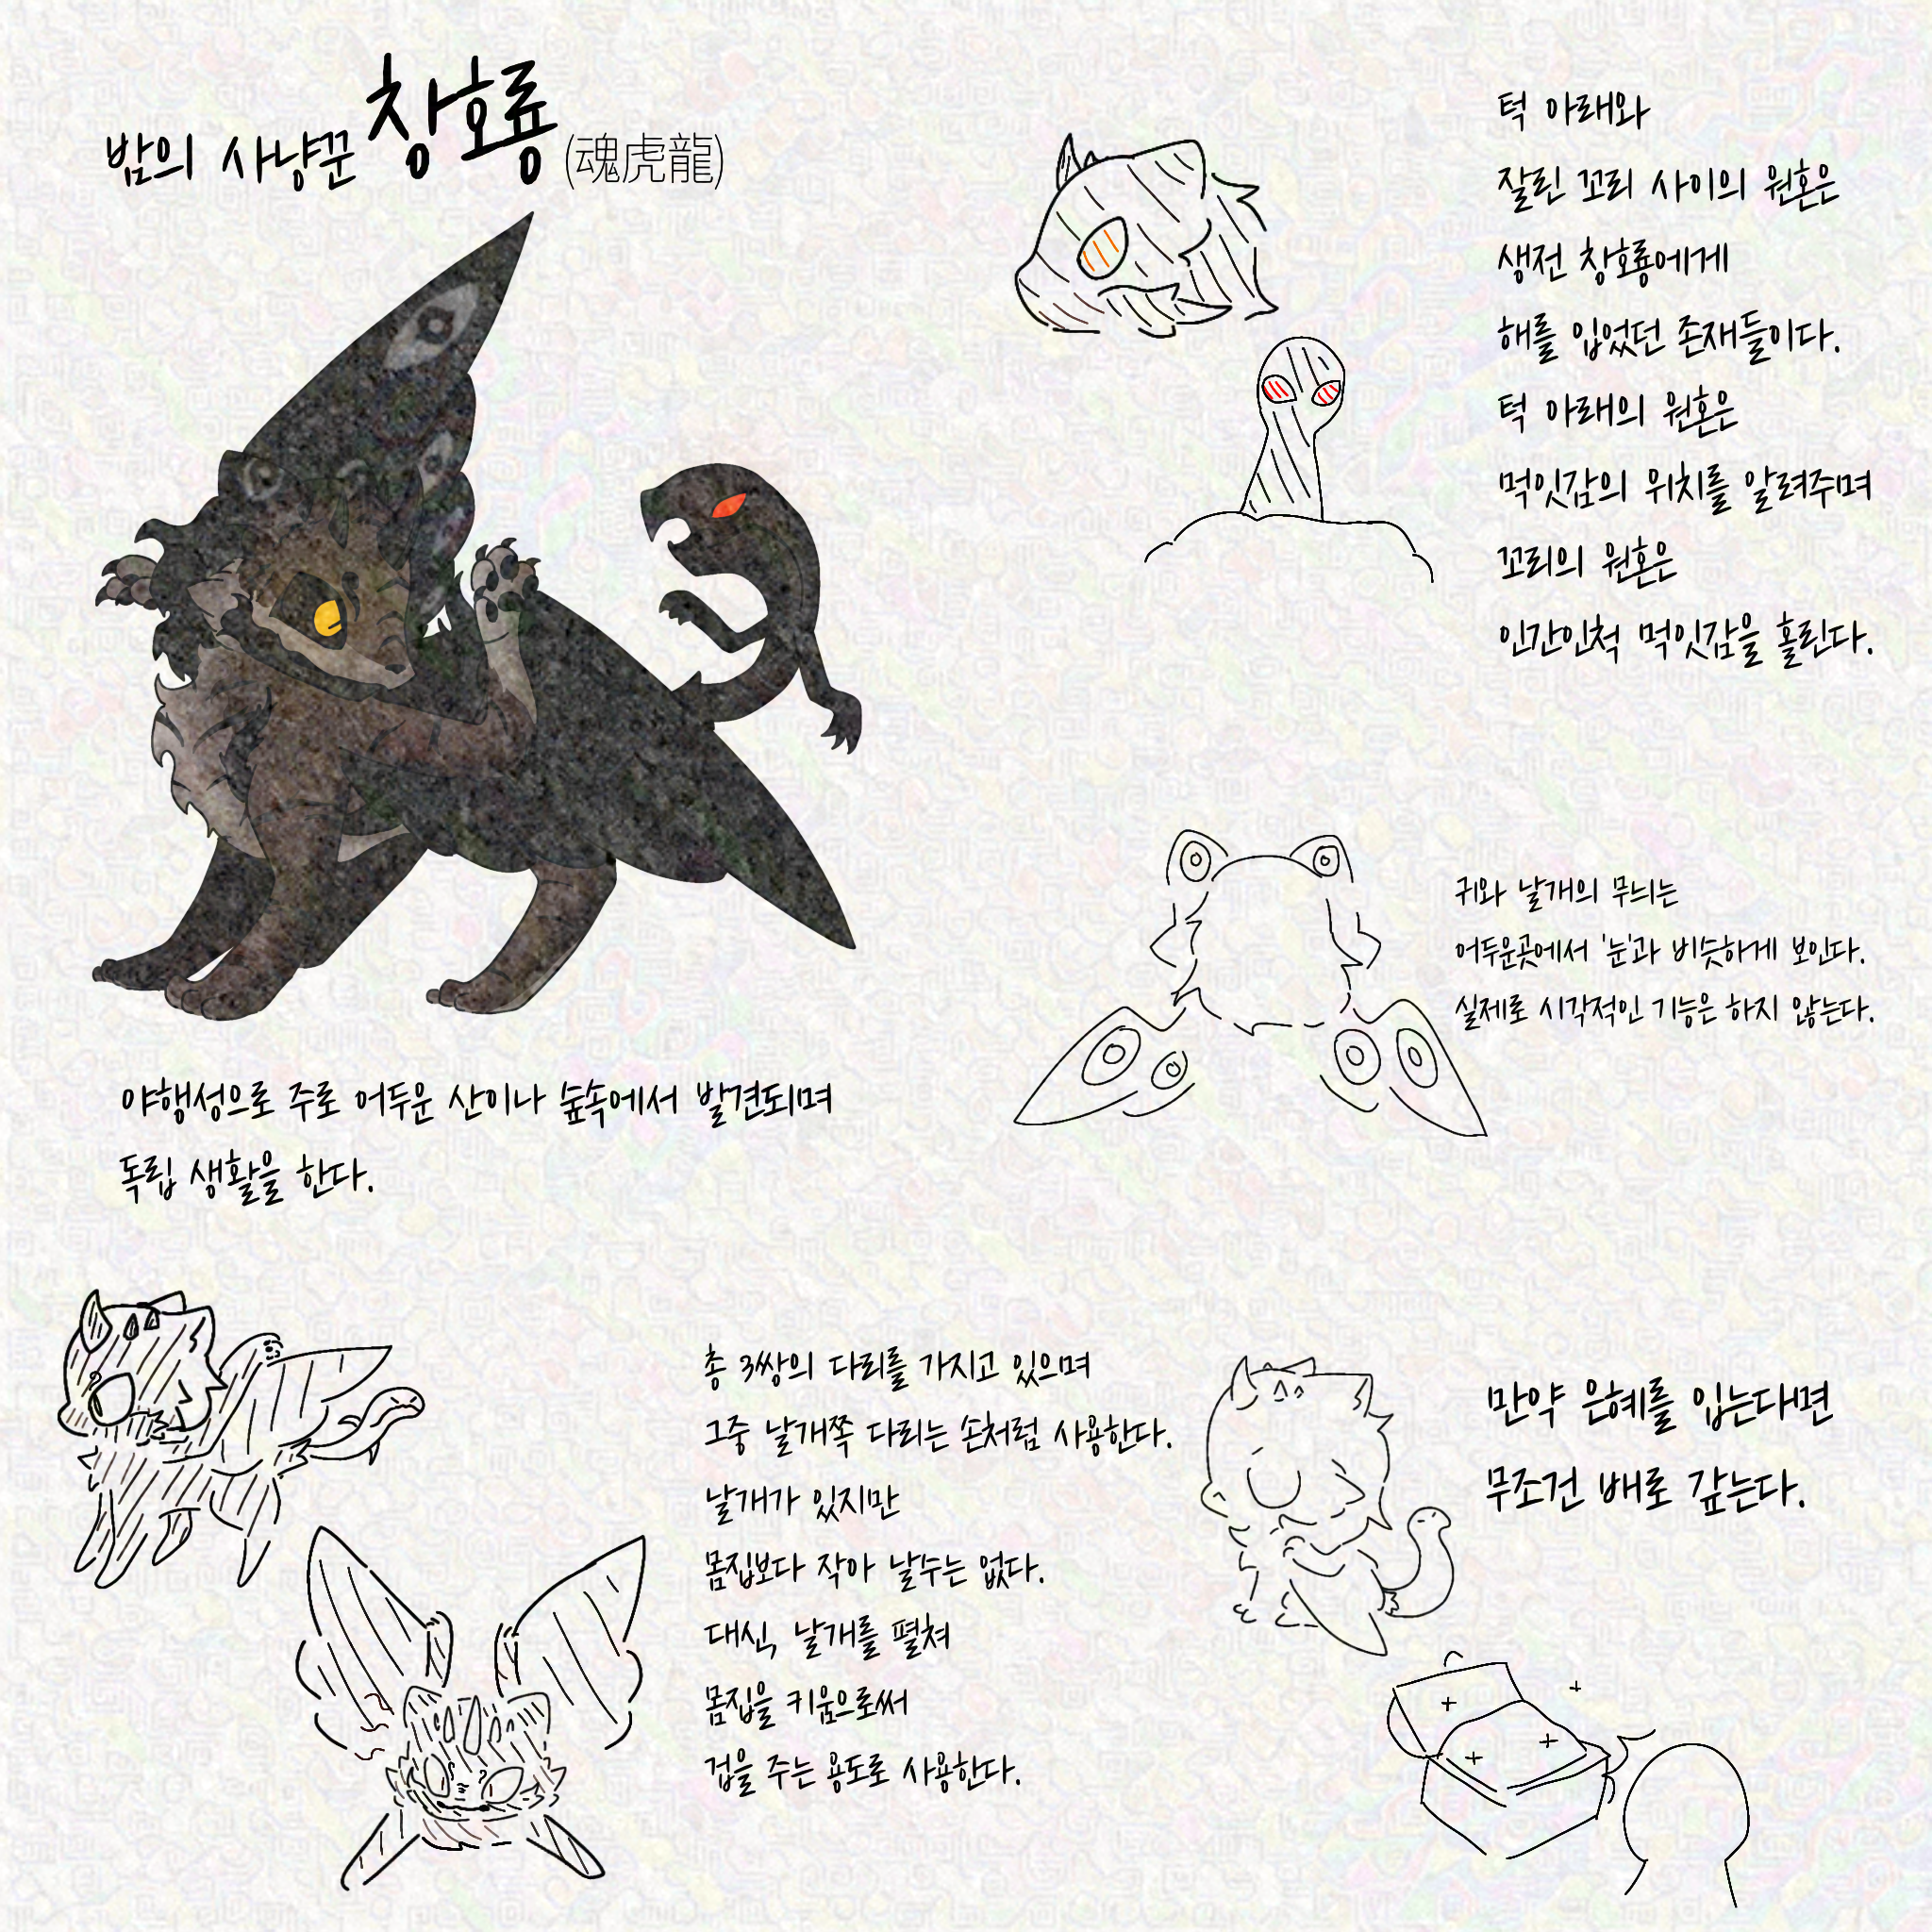 밤의 사냥꾼 창호룡 (魂虎龍)
턱 아래와
잘린 꼬리 사이의 원혼은
생전 창호룡에게
해를 입었던 존재들이다.
턱 아래의 원혼은
먹잇감의 위치를 알려주며
꼬리의 원혼은
인간인척 먹잇감을 홀린다.
귀와 날개의 무늬는
어두운곳에서 '눈'과 비슷하게 보인다.
실제로 시각적인 기능은 하지 않는다.
야행성으로 주로 어두운 산이나 숲속에서 발견되며
독립 생활을 한다.
총 3쌍의 다리를 가지고 있으며
그중 날개쪽 다리는 손처럼 사용한다.
날개가 있지만
몸집보다 작아 날수는 없다.
대신, 날개를 펼쳐
몸집을 키움으로써
겁을 주는 용도로 사용한다.
만약 은혜를 입는다면
무조건 배로 갚는다.